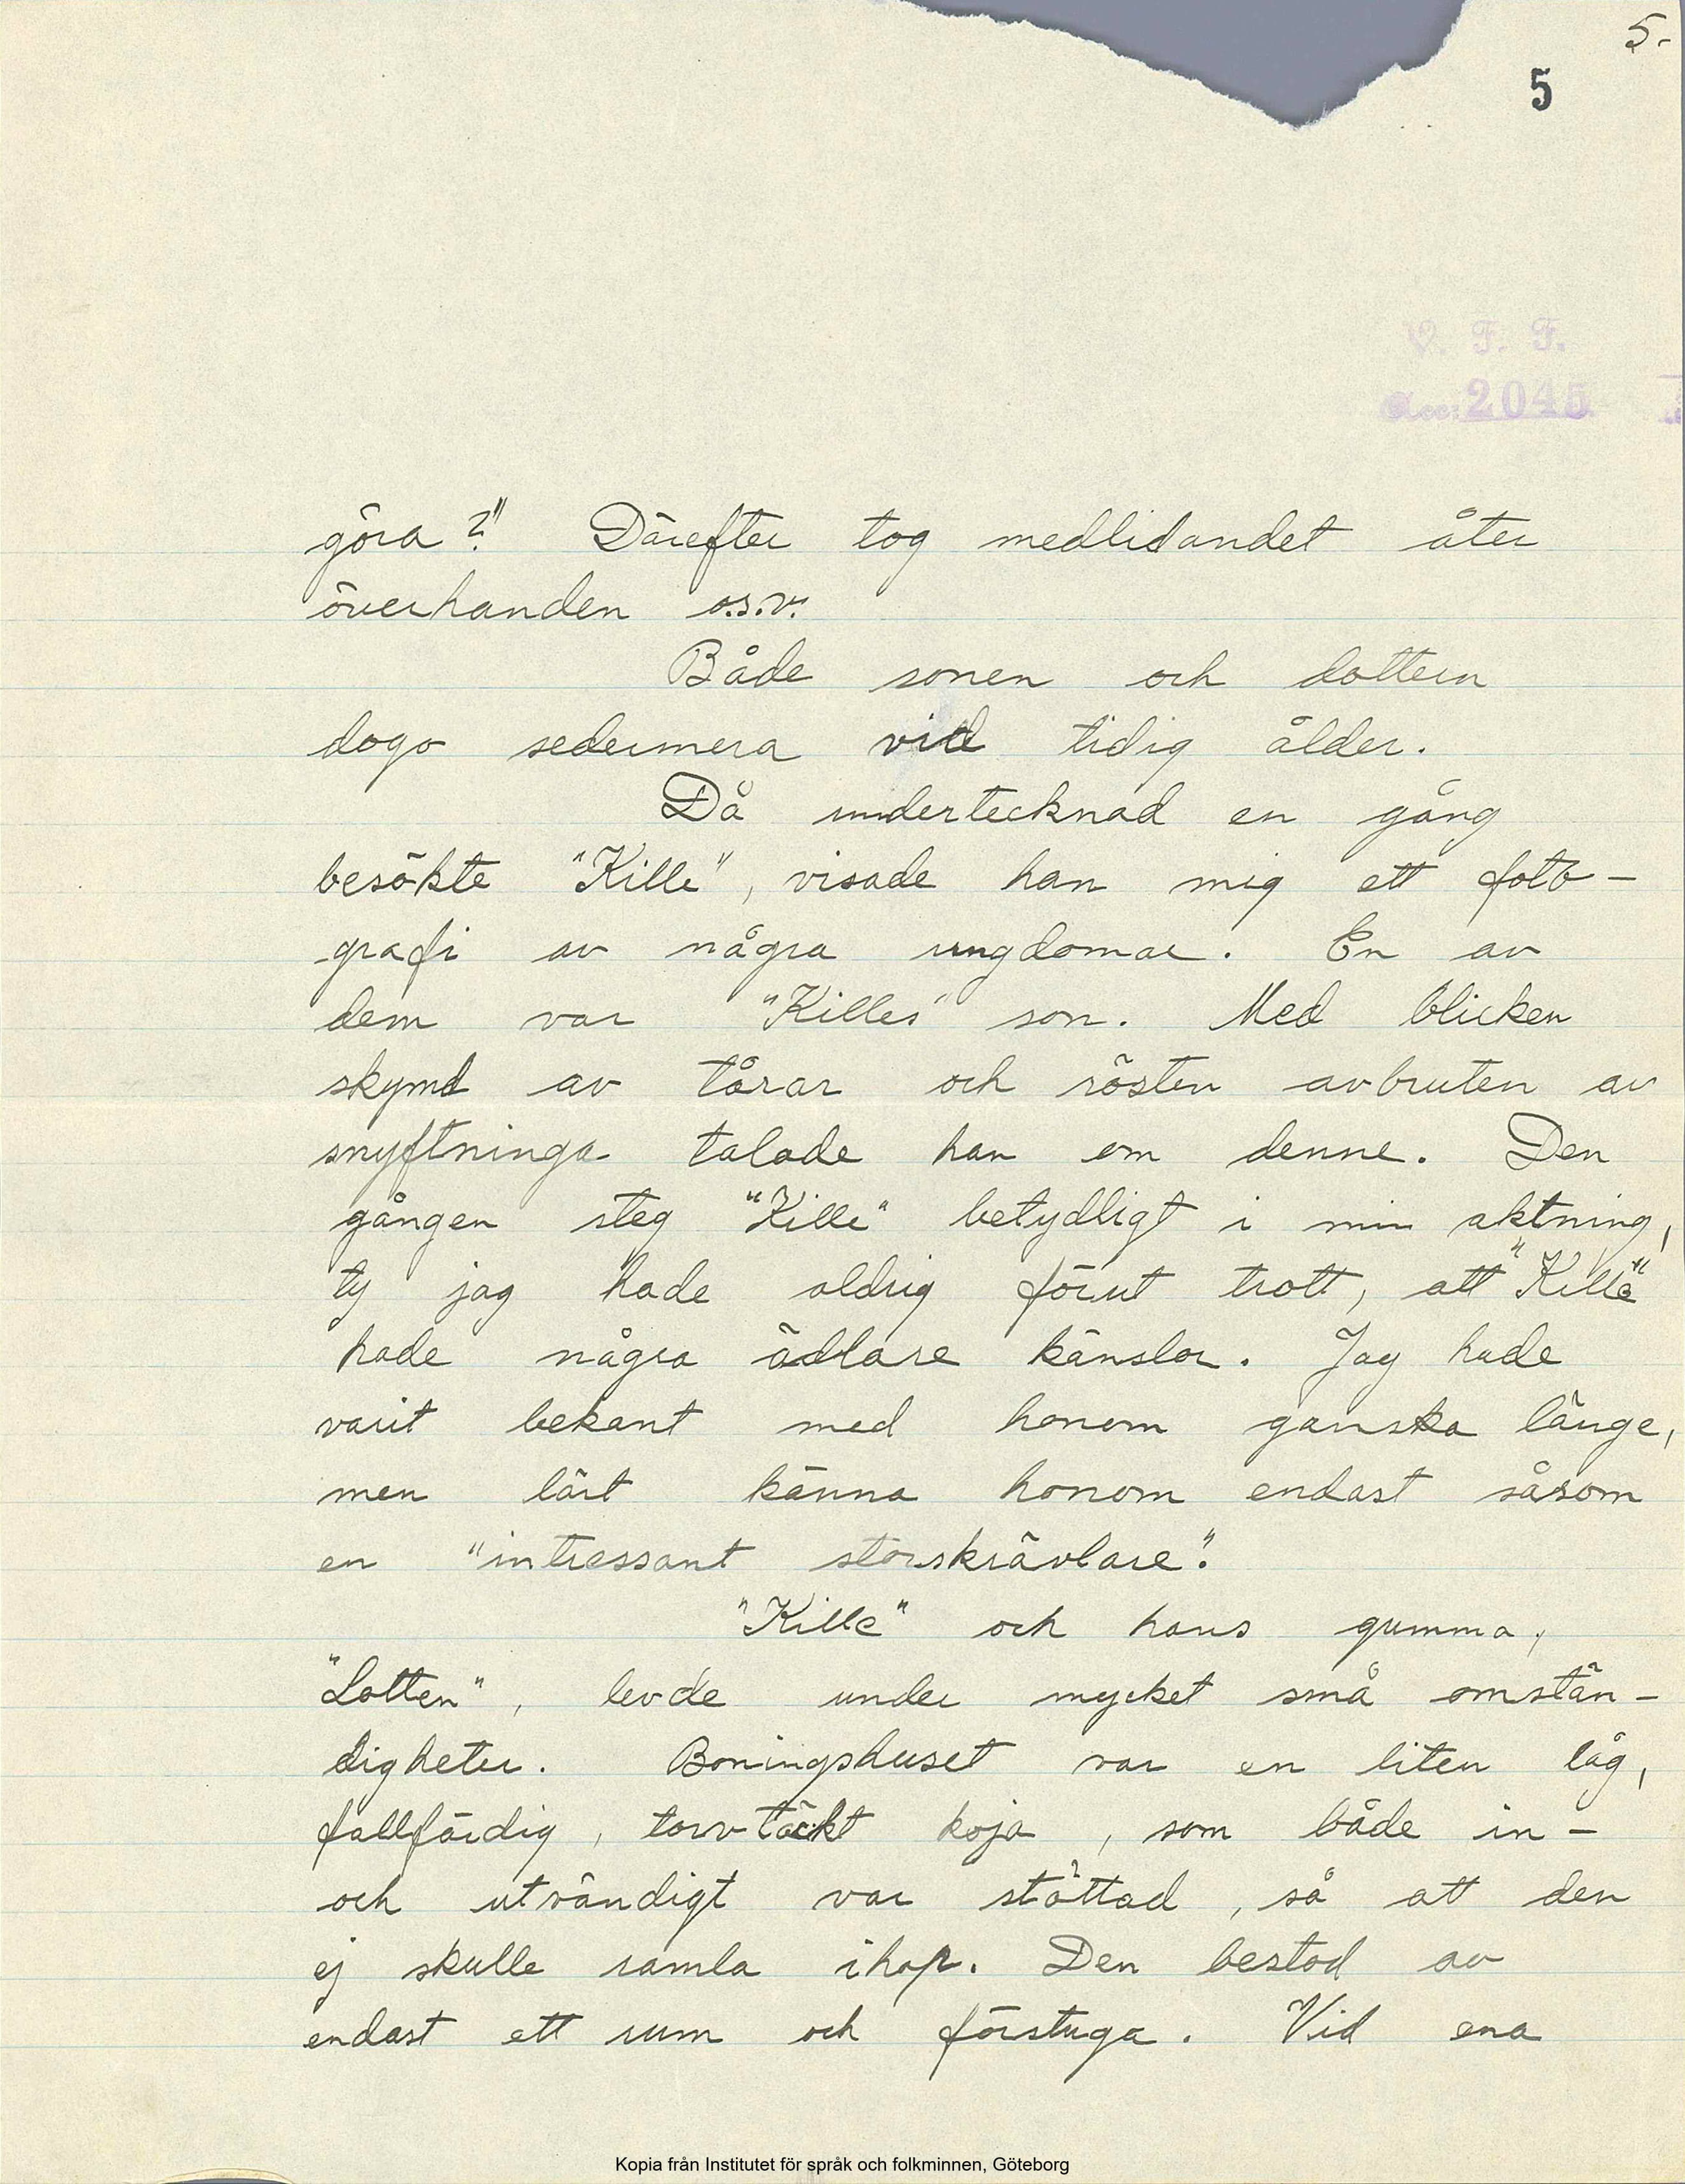 5.
5
V. F. F.
Acc: 2045
göra?" Därefter tog medlidandet åter
överhanden o.s.v.
Både sonen och dottern
dogo sedermera vid tidig ålder.
Då undertecknad en gång
besökte "Kille", visade han mig ett foto-
grafi av några ungdomar. En av
dem var "Killes" son. Med blicken
skymd av tårar och rösten avbruten av
snyftninga talade han om denne. Den
gången steg "Kille" betydligt i min aktning,
ty jag hade aldrig förut trott, att "Kille"
hade några ädlare känslor. Jag hade
varit bekant med honom ganska länge,
men lärt känna honom endast såsom
en "intressant storskrävlare".
"Kille" och hans gumma,
"Lotten", levde under mycket små omstän-
digheter. Boningshuset var en liten låg,
fallfärdig, torvtäckt koja, som både in-
och utvändigt var stöttad, så att den
ej skulle ramla ihop. Den bestod av
endast ett rum och förstuga. Vid ena
Kopia från Institutet för språk och folkminnen, Göteborg